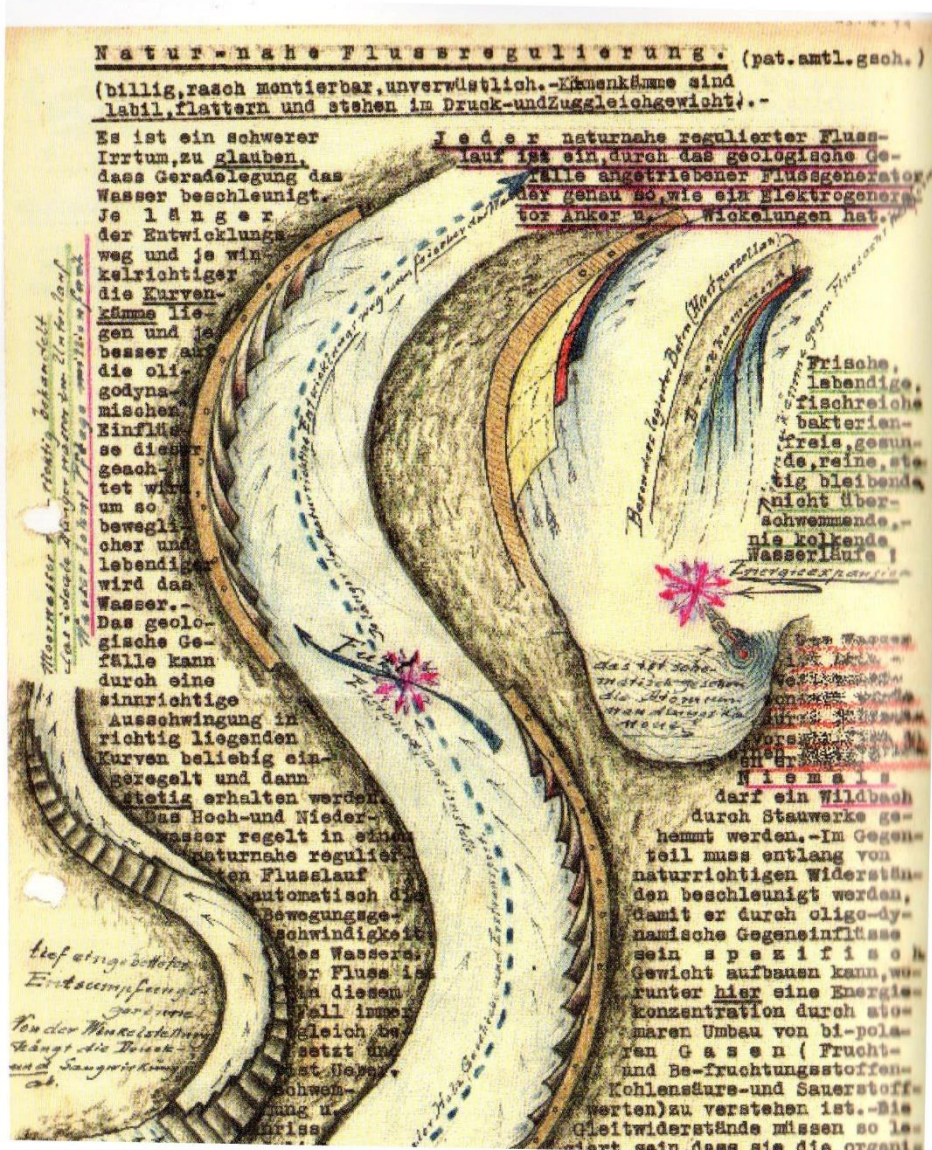 Natur-nahe Flussregulierung. (pat.amtl.gsch.)
(billig,rasch montierbar,unverwüstlich.- sind
labil,flattern und stehen im Druck-undZuggleichgewicht).-
Es ist ein schwerer
Irrtum,zu glauben,
dass Geradelegung das
Wasser beschleunigt.
Je länger
der Entwicklungs
weg und je win
kelrichtiger
die Kurven-
kämme lie-
gen und je
besser auf
die oli-
godyna-
mischen
Einflüs-
se dieser
geach-
tet wird
um so
bewegli-
cher und
lebendiger
wird das
Wasser.-
Das geolo-
gische Ge-
fälle kann
durch eine
sinnrichtige
Ausschwingung in
richtig liegenden
Kurven beliebig ein-
geregelt und dann
stetig erhalten werden.
Das Hoch-und Nieder-
wasser regelt in einem
naturnahe regulier-
ten Flusslauf
automatisch die
Bewegungsge-
schwindigkeit
des Wassers.
Der Fluss ist
in diesem
Fall immer
gleich be-
setzt und
ist Ueber-
schwem-
mung u.
Jeder naturnahe regulierter Fluss-
lauf ist ein,durch das geologische Ge-
fälle angetriebener Flussgenerator
der genau so,wie ein Elektrogenera-
tor Anker u. Wickelungen hat.
Frische,
lebendige,
fischreiche
bakterien-
freie,gesun-
de,reine,ste-
tig bleibende
nicht über-
schwemmende,-
nie kolkende
Wasserläufe !
Energieexpansion
das ist sche-
matisch gesehen
die Atomum-
Das Wasser
Niemals
darf ein Wildbach
durch Stauwerke ge-
hemmt werden.-Im Gegen-
teil muss entlang von
naturrichtigen Widerstän-
den beschleunigt werden,
damit er durch oligo-dy-
namische Gegeneinflüsse
sein spezifisch
Gewicht aufbauen kann,wo-
runter hier eine Energie-
konzentration durch ato-
maren Umbau von bi-pola-
ren Gasen ( Frucht-
und Be-fruchtungsstoffen-
Kohlensäure-und Sauerstoff-
werten)zu verstehen ist.-Die
Gleitwiderstände müssen so le-
giert sein dass sie die organi-
Besonders legierter Beton (Hartporzellan)
tief eingebetteter
Entsumpfungs-
gerinne.
Von der Winkelstellung
hängt die Druck-
und Saugwirkung
ab.